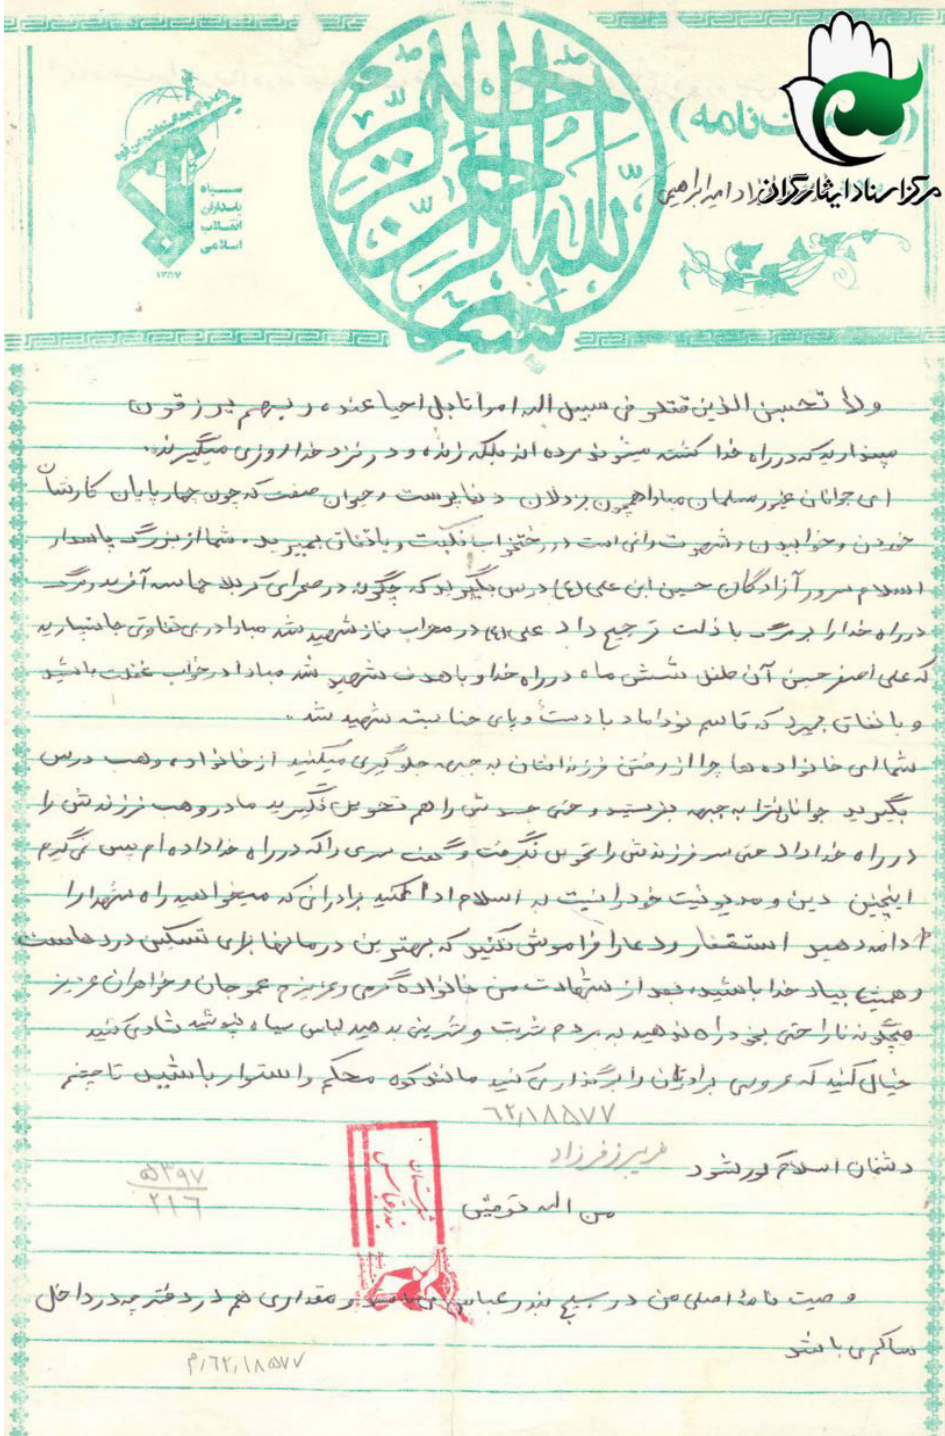 بسم الله الرحمن الرحیم
نامه)
مرکز اسناد ایثارگران
سپاه
پاسداران
انقلاب
اسلامی
۱۳۵۷
ولا تحسبن الذین قتلو فی سبیل اله امواتا بل احیا عند ربهم یرزقون
مپندارید که در راه خدا کشته میشوند مرده اند بلکه زنده و در نزد خدا روزی میگیرند.
ای جوانان غیور مسلمان مبادا همچون بزدلان دنیا پوست و حیوان صفت که چون چهارپایان کارشان
خوردن و خوابیدن و شهوت رانی است در رختخواب نکبت و با نفاق بمیرید. شما از بزرگ پاسدار
اسلام سرور آزادگان حسین ابن علی (ع) درس بگیرید که چگونه در صحرای کربلا حماسه آفرید و مرگ
در راه خدا را بر مرگ با ذلت ترجیح داد علی (ع) در محراب نماز شهید شد مبادا در بی تفاوتی جان بسپارید
که علی اصغر حسین آن طفل شش ماه در راه خدا و با هدف شهید شد مبادا در خواب غفلت باشید
و با نفاق بمیرید که قاسم نو داماد با دست و پای حنا بسته شهید شد.
شما ای خانواده ها چرا از رفتن فرزندانتان به جبهه جلوگیری میکنید از خانواده وهب درس
بگیرید جوانانتانرا به جبهه بفرستید و حتی جسدش را هم تحویل نگیرید مادر وهب فرزندش را
در راه خدا داد حتی سر فرزندش را تحویل نگرفت و گفت سری را که در راه خدا داده ام پس نمی گیرم
اینچنین دین و مدیونیت خود را نسبت به اسلام ادا کنید برادرانی که میخواهید راه شهدا را
ادامه دهید استقفار و دعا را فراموش نکنید که بهترین درمانها برای تسکین دردهاست
و همیشه بیاد خدا باشید، بعد از شهادت من خانواده گرامی و عزیزم عمو جان و خواهران عزیز
هیچگونه ناراحتی بخود راه ندهید به مردم شربت و شیرینی بدهید لباس سیاه نپوشید شادی کنید
خیال کنید که عروسی برادرتان را برگذار می کنید مانند کوه محکم و استوار باشید تا چشم
۶۲٫۱۸۵۷۷
دشمنان اسلام کور شود فریبرز فرزاد
۵۳۹۷
۲۱۶
شهرستان
بندرعباس
من اله توفیق
وصیت نامۀ اصلی من در بسیج بندر عباس می باشد و مقداری هم در دفترچه در داخل
ساکم می باشد
م٫۶۲٫۱۸۵۷۷